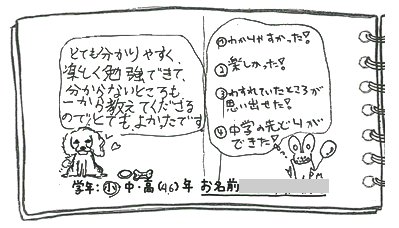 とても分かりやすく、
楽しく勉強できて、
分からないところも
一から教えてくださる
のでとてもよかったです
①わかりやすかった!
②楽しかった!
③わすれていたところが
思い出せた!
④中学の先どりが
できた!
学年:小 中・高(6)年 お名前